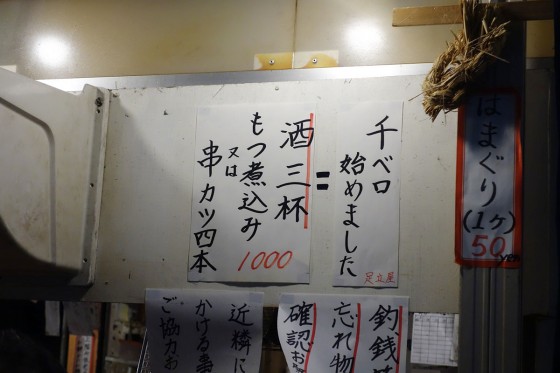 はまぐり
(1ヶ)
50
YEN
千ベロ
始めました
足立屋
=
酒三杯
もつ煮込み
又は
串カツ四本
1000
釣銭
忘れ物
確認お
近隣に
かける
ご協力お